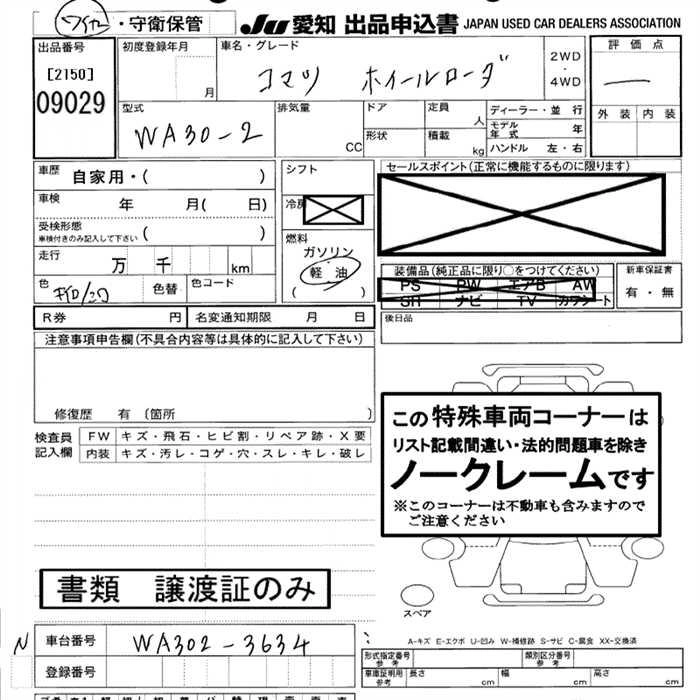 ・守衛保管 JU 愛知 出品申込書 JAPAN USED CAR DEALERS ASSOCIATION
出品番号 初度登録年月 車名・グレード 評価点
[2150] 月 コマツ ホイールローダ 2WD・4WD
09029
型式 排気量 ドア 定員 ディーラー・並行 外装 内装
WA30-2 CC 形状 人 積載 kg モデル年式 年
ハンドル 左・右
車歴 自家用・( ) シフト セールスポイント(正常に機能するものに限ります)
車検 年 月( 日) 冷房
受検形態 車検付きのみ記入して下さい ( ) 燃料
ガソリン
走行 万 千 km 軽油 装備品(純正品に限り○をつけてください) 新車保証書
色 色替 色コード ( ) PS PW エアB AW 有・無
SR ナビ TV カワシート
R券 円 名変通知期限 月 日 後日品
注意事項申告欄(不具合内容等は具体的に記入して下さい)
修復歴 有 〔箇所 〕
この特殊車両コーナーは
リスト記載間違い・法的問題車を除き
ノークレームです
※このコーナーは不動車も含みますので
ご注意ください
検査員記入欄 FW キズ・飛石・ヒビ割・リペア跡・X要
内装 キズ・汚レ・コゲ・穴・スレ・キレ・破レ
書類 譲渡証のみ
スペア
A-キズ E-エクボ U-凹み W-補修跡 S-サビ C-腐食 XX-交換済
N 車台番号 WA302-3634
登録番号
形式指定番号 参考 類別区分番号 参考
車庫証明用 参考 長さ cm 幅 cm 高さ cm